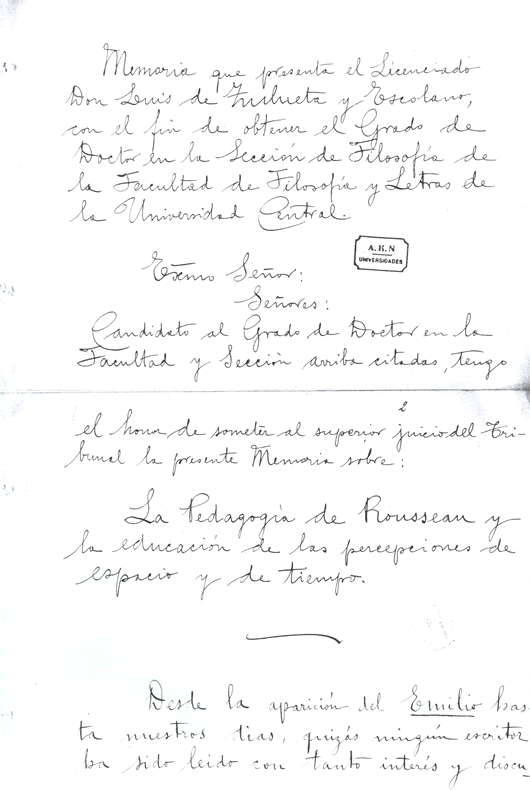 Memoria que presenta el Licenciado
Don Luis de Zulueta y Escolano,
con el fin de obtener el Grado de
Doctor en la Sección de Filosofía de
la Facultad de Filosofía y Letras de
la Universidad Central.
A.H.N
UNIVERSIDADES
Excmo Señor:
Señores:
Candidato al Grado de Doctor en la
Facultad y Sección arriba citadas, tengo
2
el honor de someter al superior juicio del Tri-
bunal la presente Memoria sobre:
La Pedagogía de Rousseau y
la educación de las percepciones de
espacio y de tiempo.
Desde la aparición del Emilio has-
ta nuestros dias, quizás ningún escritor
ha sido leido con tanto interés y discu-